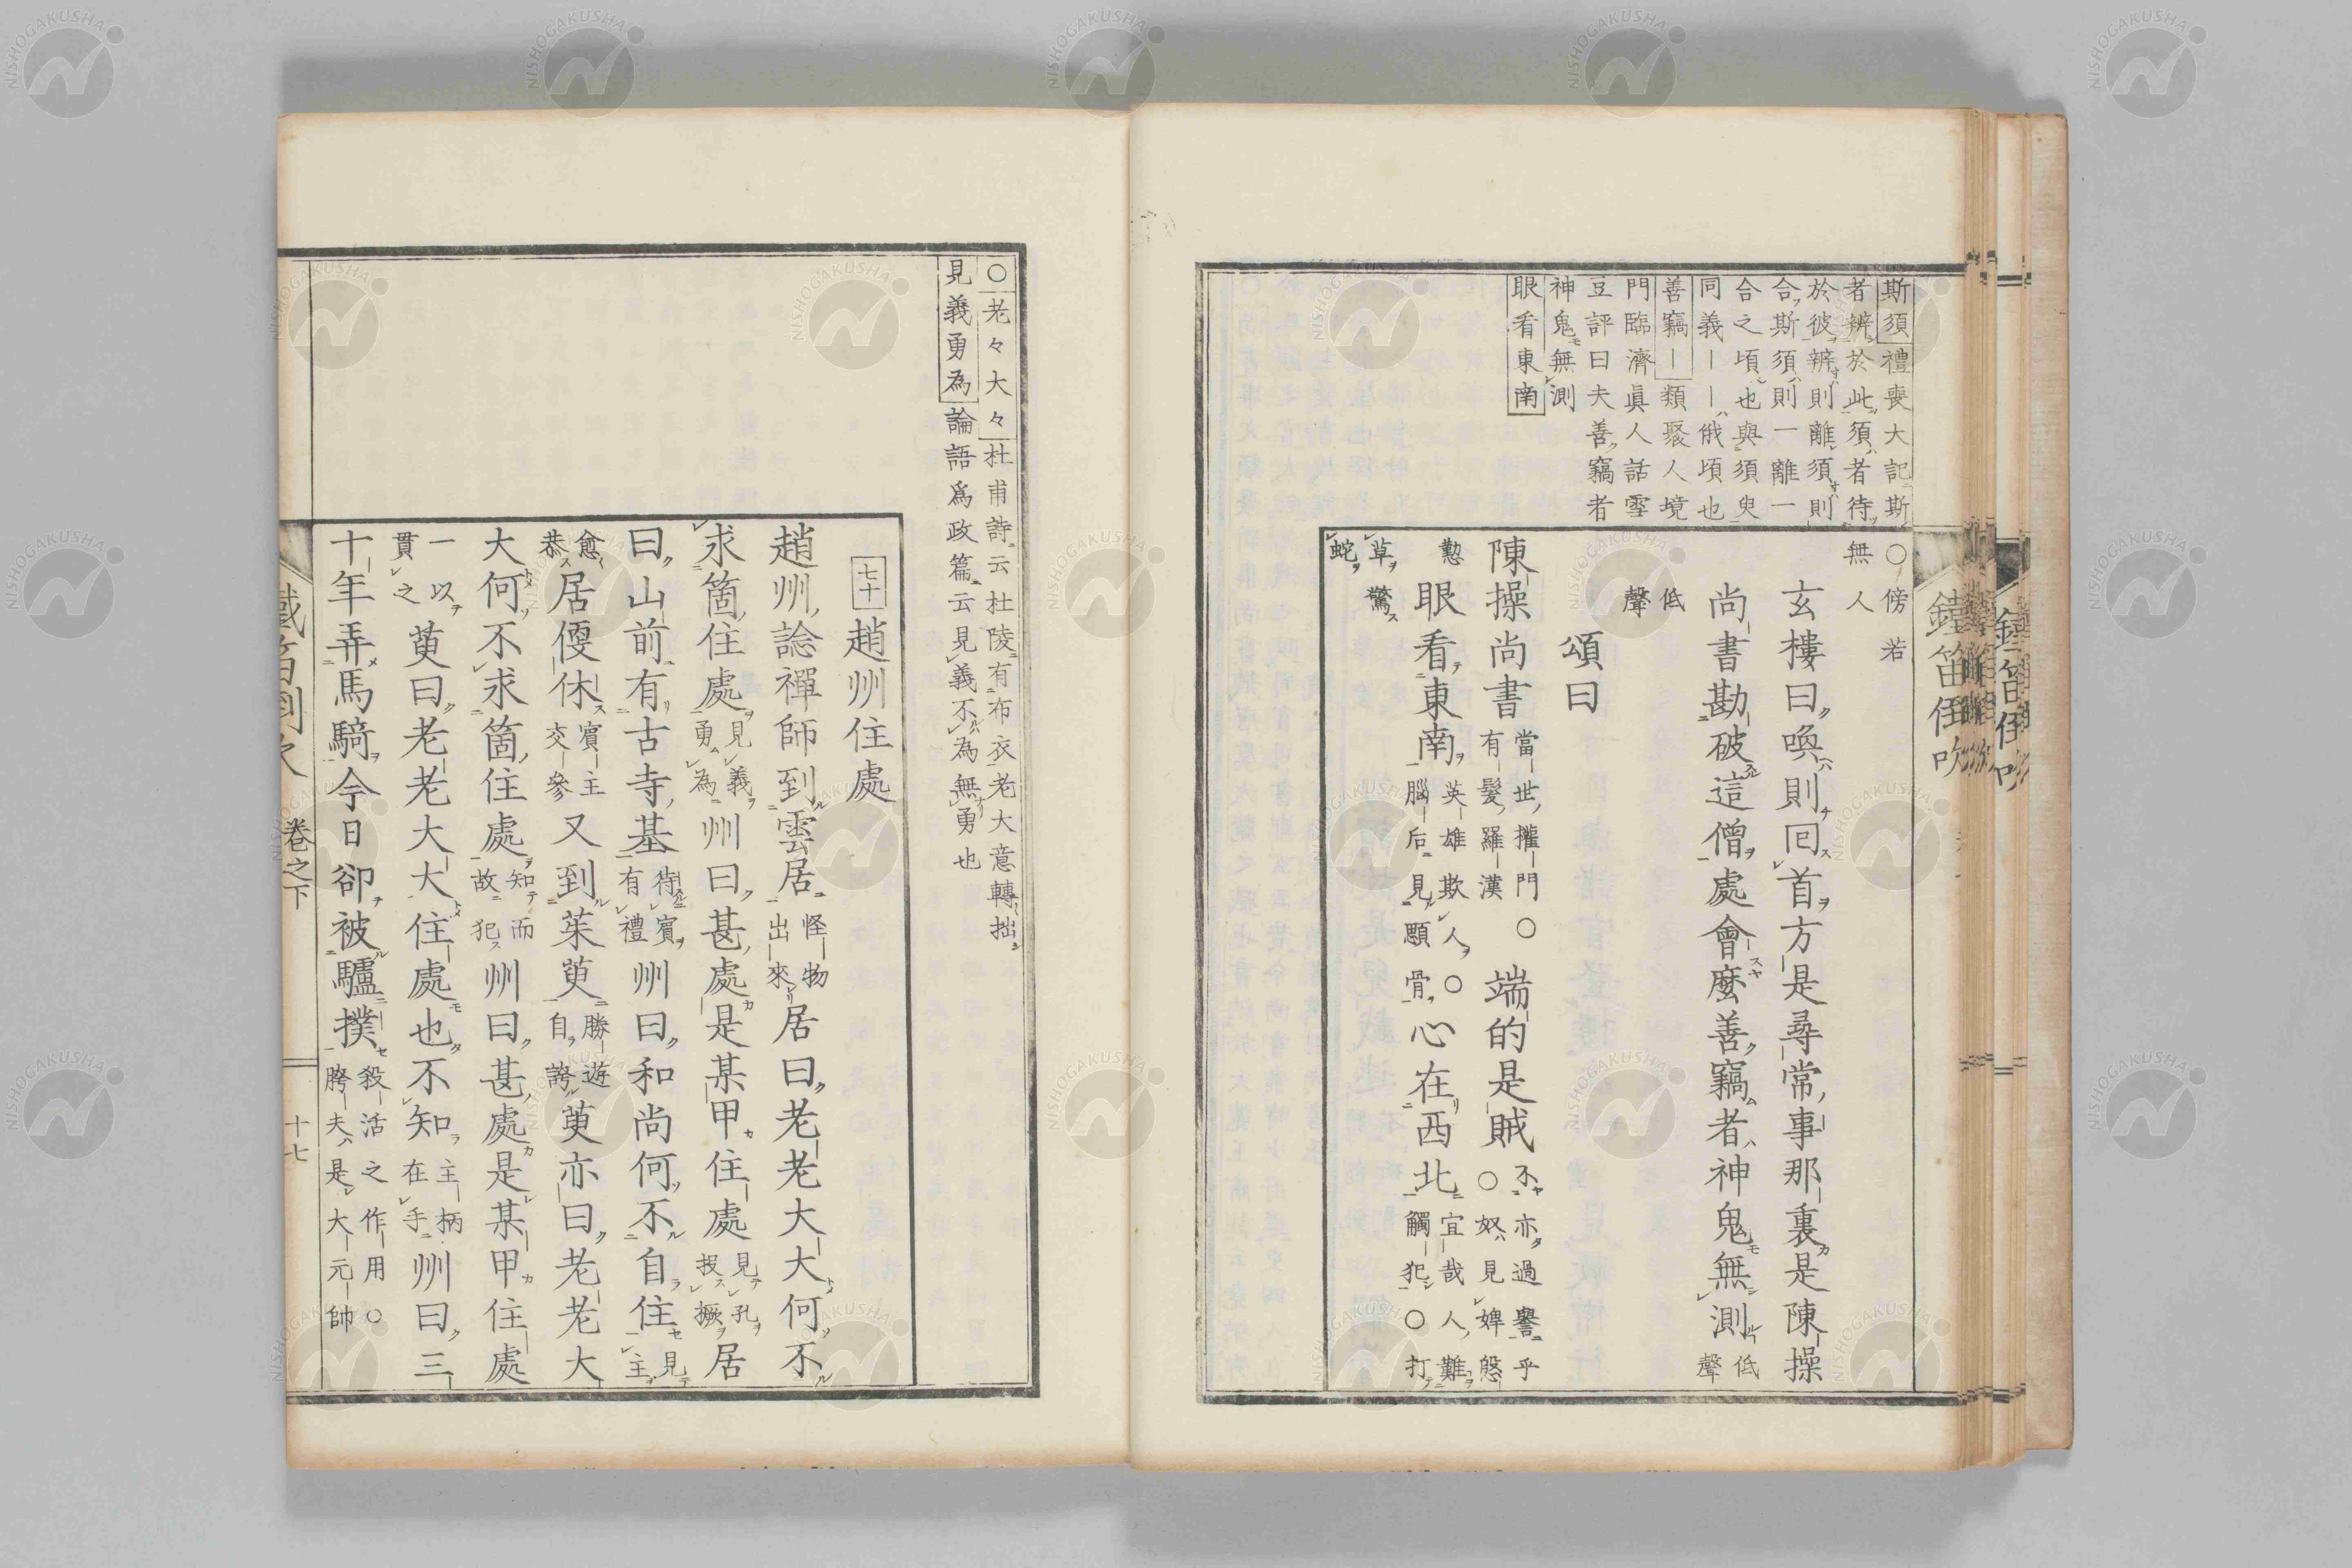 斯須禮喪大記斯
者辨於此須者待
於彼辨則離須則
合斯須則一離一
合之頃也與須臾
同義——俄頃也
善竊—類聚人境
門臨濟眞人話雪
豆評曰夫善竊者
神鬼無測
眼看東南
○傍若無人
玄樓曰喚則回首方是尋常事那裏是陳操
尚書勘破這僧處會麼善竊者神鬼無測低聲
低聲
頌曰
陳操尚書當世攉門有髮羅漢○端的是賊不亦過譽乎○奴見婢慇
懃眼看東南英雄欺人腦后見顋骨○心在西北宜哉人難觸犯○打
草驚蛇
○老々大々杜甫詩云杜陵有布衣老大意轉拙
見義勇為論語爲政篇云見義不為無勇也
七十 趙州住處
趙州諗禪師到雲居怪物出來居曰老老大大何不
求箇住處見義勇為州曰甚處是某甲住處見孔投橛居
曰山前有古寺基待賓有禮州曰和尚何不自住見主
愈恭居便休賓主交參又到茱萸勝遊自誇萸亦曰老老大
大何不求箇住處知而故犯州曰甚處是某甲住處
一以貫之萸曰老老大大住處也不知主柄在手州曰三
十年弄馬騎今日卻被驢撲殺活之作用○胯夫是大元帥
卷之下
十七